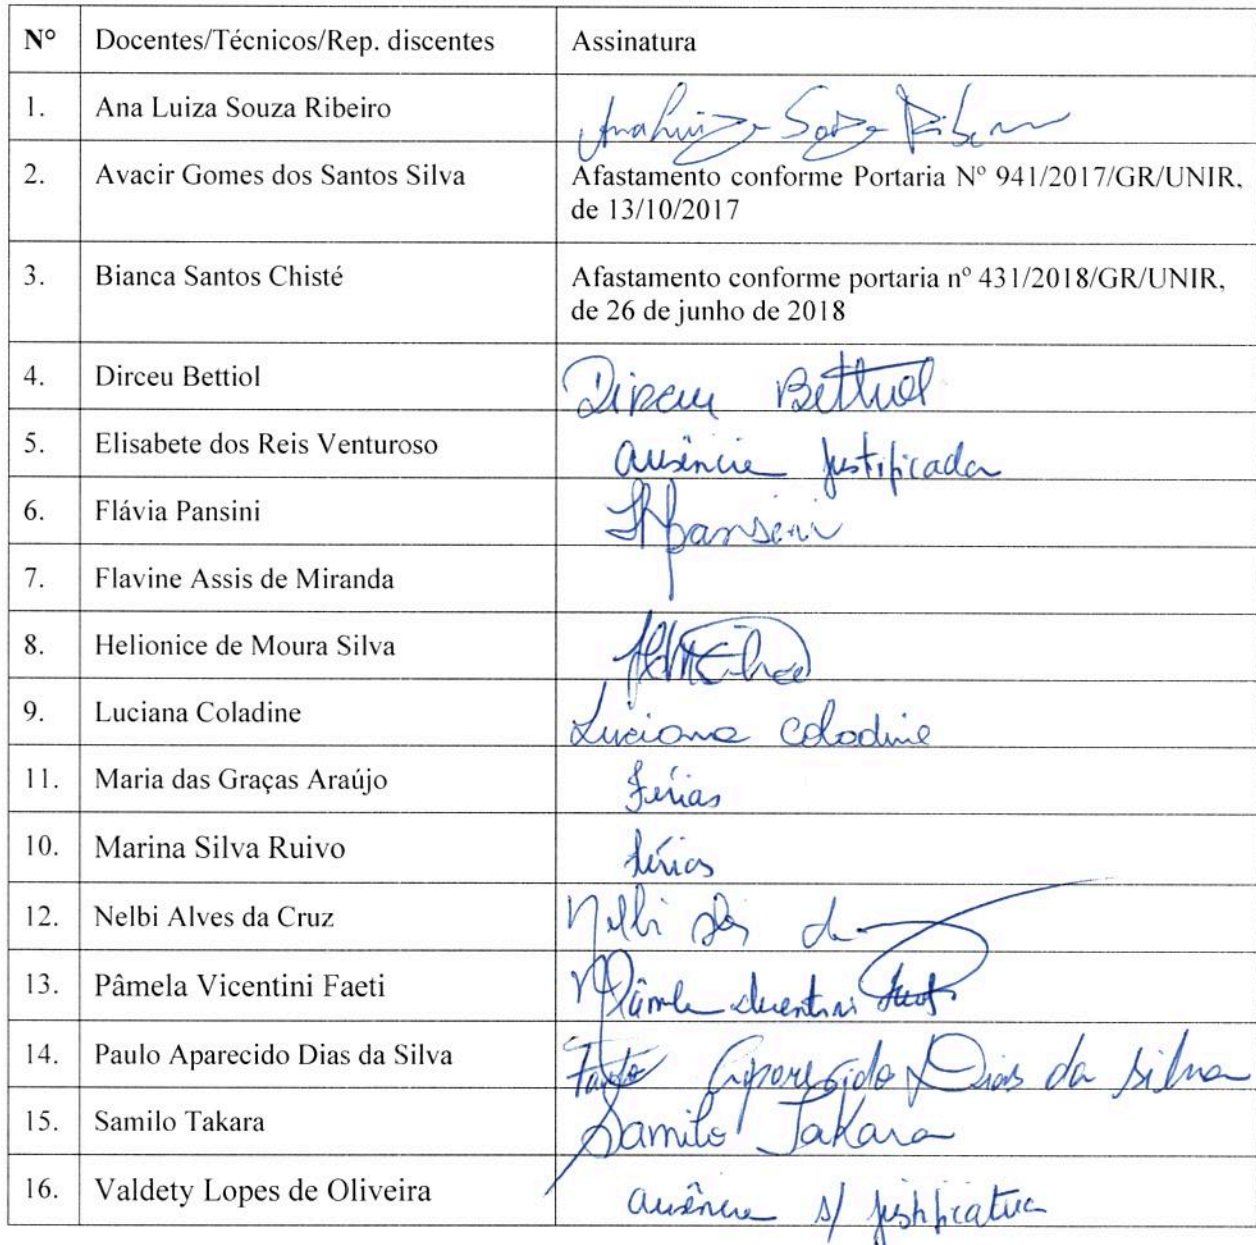 Nº Docentes/Técnicos/Rep. discentes Assinatura
1. Ana Luiza Souza Ribeiro Ana Luiza Souza Ribeiro
2. Avacir Gomes dos Santos Silva Afastamento conforme Portaria Nº 941/2017/GR/UNIR,
de 13/10/2017
3. Bianca Santos Chisté Afastamento conforme portaria nº 431/2018/GR/UNIR,
de 26 de junho de 2018
4. Dirceu Bettiol Dirceu Bettiol
5. Elisabete dos Reis Venturoso ausência justificada
6. Flávia Pansini Pansini
7. Flavine Assis de Miranda
8. Helionice de Moura Silva
9. Luciana Coladine Luciana Coladine
11. Maria das Graças Araújo Férias
10. Marina Silva Ruivo férias
12. Nelbi Alves da Cruz Nelbi
13. Pâmela Vicentini Faeti Pâmela Vicentini Faeti
14. Paulo Aparecido Dias da Silva Paulo Aparecido Dias da Silva
15. Samilo Takara Samilo Takara
16. Valdety Lopes de Oliveira ausência s/ justificativa